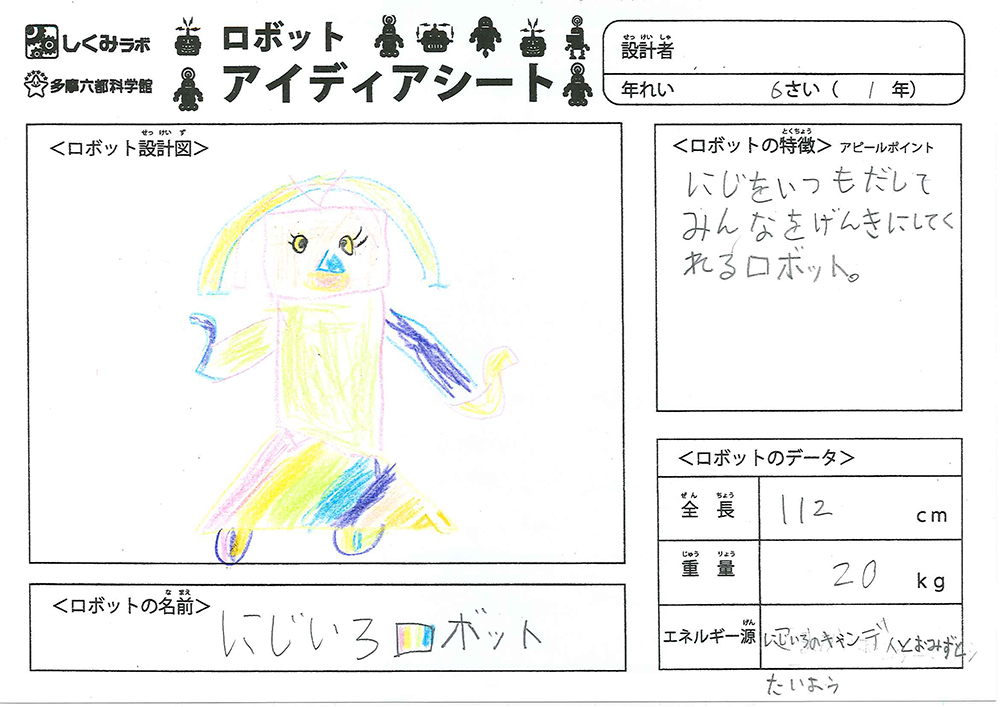 しくみラボ
多摩六都科学館
ロボット
アイディアシート
せっ けい しゃ
設計者
年れい 6さい( 1 年)
せっ けい ず
<ロボット設計図>
とくちょう
<ロボットの特徴> アピールポイント
にじをいつもだして
みんなをげんきにしてく
れるロボット。
<ロボットのデータ>
ぜん ちょう
全長 112 cm
じゅう りょう
重量 20 kg
げん
エネルギー源 にじいろのキャンディとおみずと
たいよう
な まえ
<ロボットの名前>
にじいろロボット